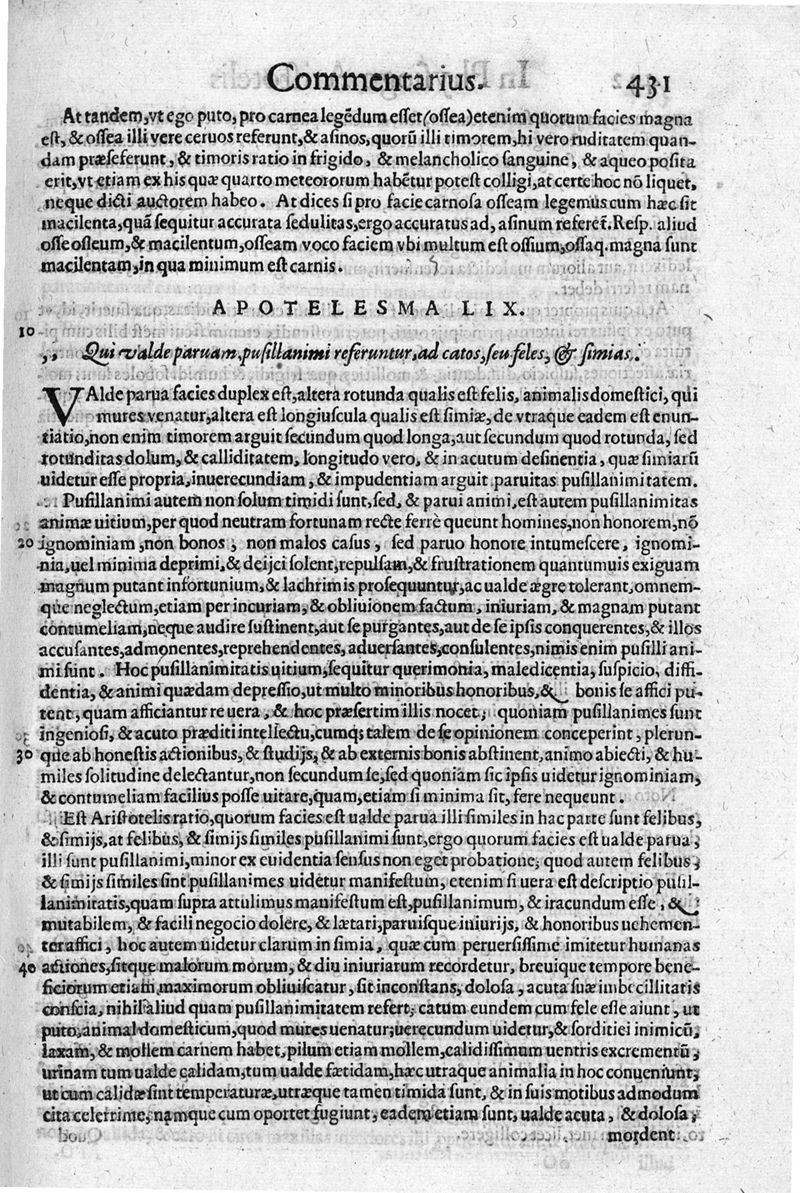 Commentarius. 431
At tandem, vt ego puto, pro carnea legẽdum esset (ossea) etenim quorum facies magna
est, & ossea illi vere ceruos referunt, & asinos, quorũ illi timorem, hi vero ruditatem quan-
dam præseferunt, & timoris ratio in frigido, & melancholico sanguine, & aqueo posita
erit, vt etiam ex his quæ quarto meteororum habẽtur potest colligi, at certe hoc nõ liquet,
neque dicti auctorem habeo. At dices si pro facie carnosa osseam legemus cum hæc sit
macilenta, quã sequitur accurata sedulitas, ergo accuratus ad, asinum referet. Resp. aliud
osse osseum, & macilentum, osseam voco faciem vbi multum est ossium, ossaq. magna sunt
macilentam, in qua minimum est carnis.
APOTELESMA LIX.
10
,, Qui valde paruam, pusillanimi referuntur, ad catos, seu feles, & simias.
VAlde parua facies duplex est, altera rotunda qualis est felis, animalis domestici, qui
mures venatur, altera est longiuscula qualis est simiæ, de vtraque eadem est enun-
tiatio, non enim timorem arguit secundum quod longa, aut secundum quod rotunda, sed
rotunditas dolum, & calliditatem, longitudo vero, & in acutum desinentia, quæ simiarũ
uidetur esse propria, inuerecundiam, & impudentiam arguit paruitas pusillanimitatem.
Pusillanimi autem non solum timidi sunt, sed, & parui animi, est autem pusillanimitas
animæ uitium, per quod neutram fortunam recte ferrè queunt homines, non honorem, nõ
20 ignominiam, non bonos, non malos casus, sed paruo honore intumescere, ignomi-
nia, uel minima deprimi, & deijci solent, repulsam, & frustrationem quantumuis exiguam
magnum putant infortunium, & lachrimis prosequuntur, ac ualde ægre tolerant, omnem-
que neglectum, etiam per incuriam, & obliuionem factum, iniuriam, & magnam putant
contumeliam, neque audire sustinent, aut se purgantes, aut de se ipsis conquerentes, & illos
accusantes, admonentes, reprehendentes, aduersantes, consulentes, nimis enim pusilli ani-
mi sunt. Hoc pusillanimitatis uitium, sequitur querimonia, maledicentia, suspicio, diffi-
dentia, & animi quædam depressio, ut multo minoribus honoribus, & bonis se affici pu-
tent, quam afficiantur re uera, & hoc præsertim illis nocet, quoniam pusillanimes sunt
ingeniosi, & acuto præditi intellectu, cumq; talem de se opinionem conceperint, plerun-
30 que ab honestis actionibus, & studijs, & ab externis bonis abstinent, animo abiecti, & hu-
miles solitudine delectantur, non secundum se, sed quoniam sic ipsis uidetur ignominiam,
& contumeliam facilius posse uitare, quam, etiam si minima sit, fere nequeunt.
Est Aristotelis ratio, quorum facies est ualde parua illi similes in hac parte sunt felibus,
& simijs, at felibus, & simijs similes pusillanimi sunt, ergo quorum facies est ualde parua,
illi sunt pusillanimi, minor ex euidentia sensus non eget probatione, quod autem felibus,
& simijs similes sint pusillanimes uidetur manifestum, etenim si uera est descriptio pusil-
lanimitatis, quam supra attulimus manifestum est, pusillanimum, & iracundum esse, &
mutabilem, & facili negocio dolere, & lætari, paruisque iniurijs, & honoribus uehemen-
ter affici, hoc autem uidetur clarum in simia, quæ cum peruersissime imitetur humanas
40 actiones, sitque malorum morum, & diu iniuriarum recordetur, breuique tempore bene-
ficiorum etiam maximorum obliuiscatur, sit inconstans, dolosa, acuta suæ imbecillitatis
conscia, nihil aliud quam pusillanimitatem refert, catum eundem cum fele esse aiunt, ut
puto, animal domesticum, quod mures uenatur, uerecundum uidetur, & sorditiei inimicũ,
laxam, & mollem carnem habet, pilum etiam mollem, calidissimum uentris excrementũ,
urinam tum ualde calidam, tum ualde fœtidam, hæc utraque animalia in hoc conueniunt,
ut cum calidæ sint temperaturæ, utræque tamen timida sunt, & in suis motibus admodum
cita celerrime, namque cum oportet fugiunt, eadem etiam sunt, ualde acuta, & dolosa,
mordent